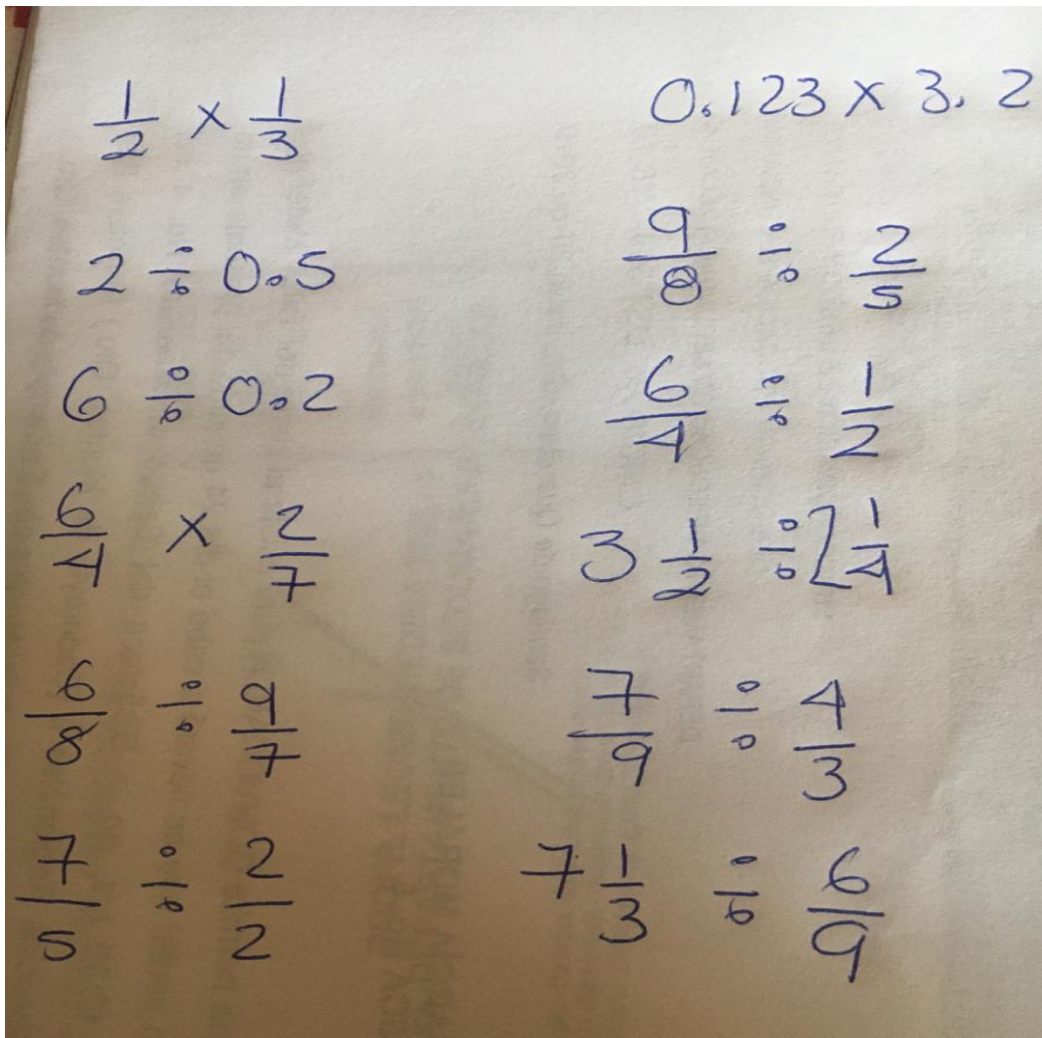 1/2 × 1/3
2 ÷ 0.5
6 ÷ 0.2
6/4 × 2/7
6/8 ÷ 9/7
7/5 ÷ 2/2
0.123 × 3.2
9/8 ÷ 2/5
6/4 ÷ 1/2
3 1/2 ÷ 2 1/4
7/9 ÷ 4/3
7 1/3 ÷ 6/9